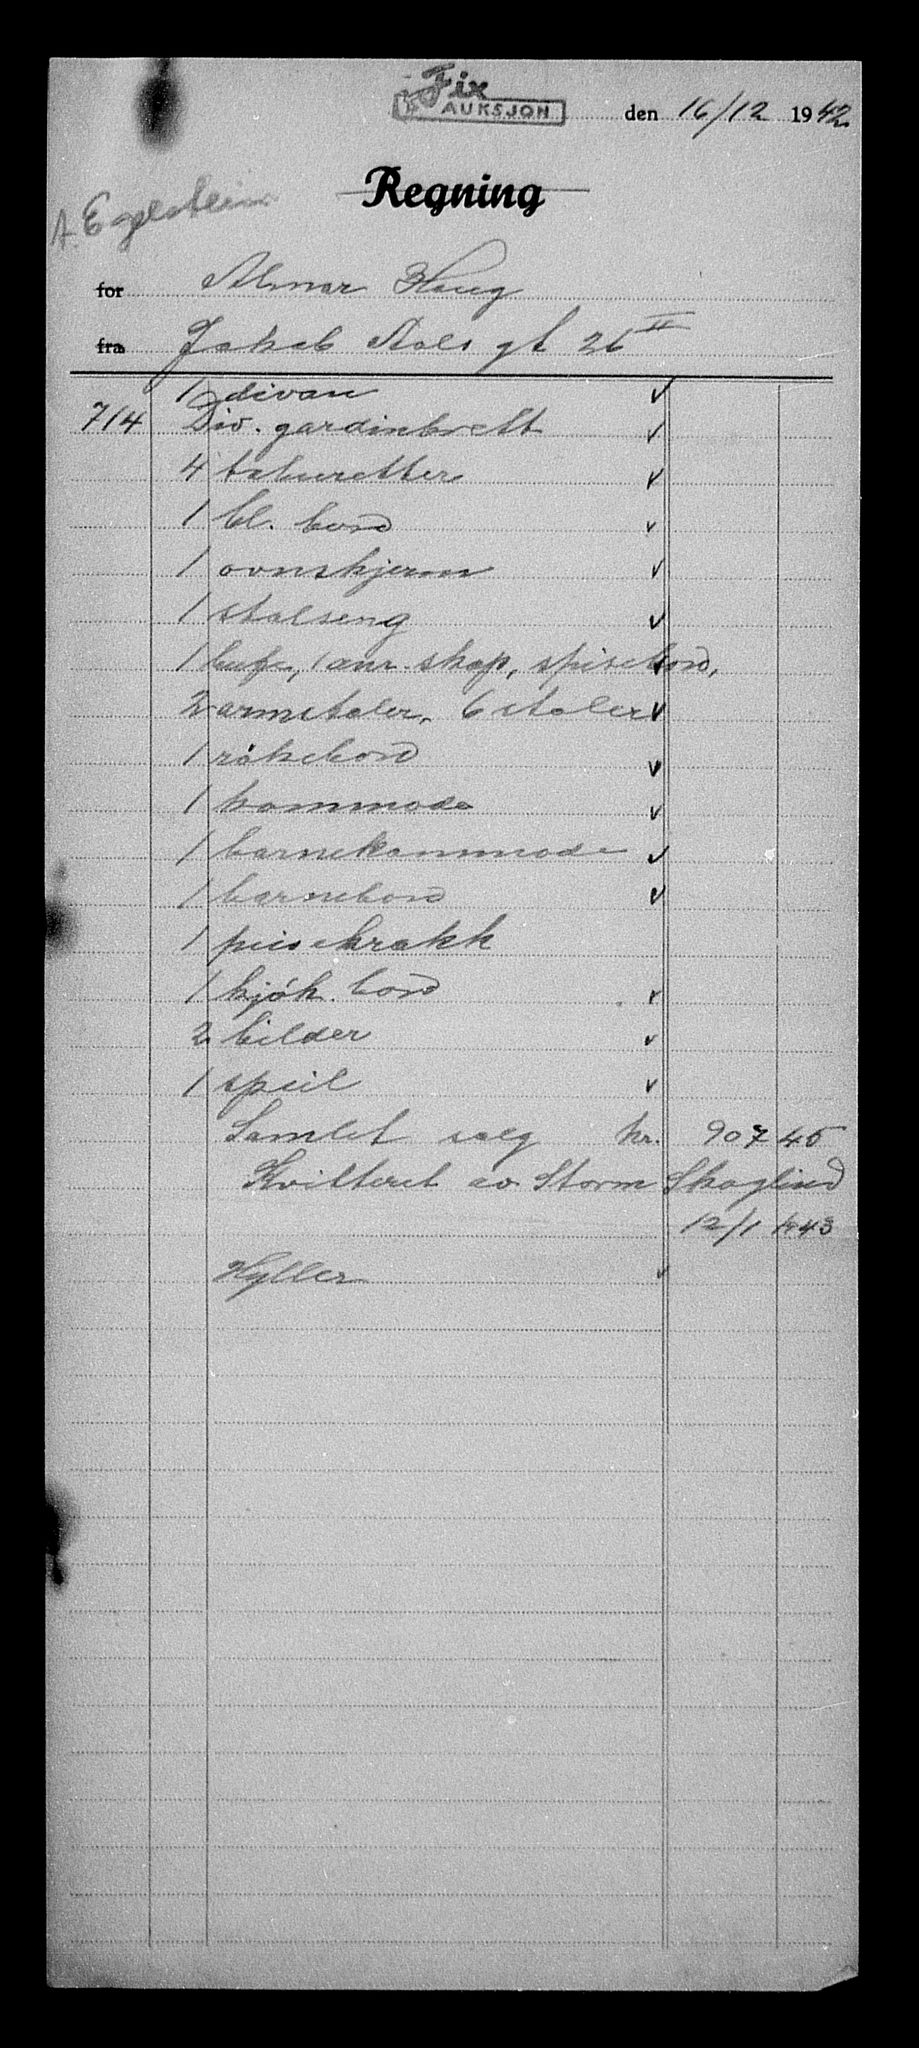 Fix
AUKSJON
den 16/12 1942
Regning
A.
for Almar Haug
fra Jakob Aals gt 26 II
1 divan
714 Div. gardinbrett
4 taburetter
1 bl. bord
1 ovnskjerm
1 stålseng
1 bufe, 1 anr. skap, spisebord,
2 armstoler, 6 stoler
1 rökebord
1 kommode
1 barnekommode
1 barnebord
1 peisekrakk
1 kjök. bord
2 bilder
1 speil
Samlet salg kr. 907 45
Kvitteret av Storm Skoglund
12/1 1943
Hyller